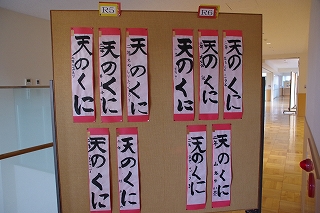 R5
R6
天のくに
天のくに
天のくに
天のくに
天のくに
天のくに
天のくに
天のくに
天のくに
天のくに